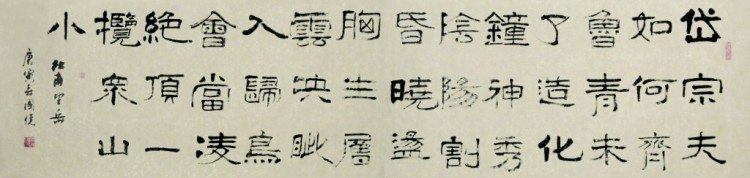 岱宗夫
如何齊
魯青未
了造化
鐘神秀
陰陽割
昏曉盪
胸生層
雲決眦
入歸鳥
會當凌
絕頂一
攬衆山
小
杜甫望岳
庚寅